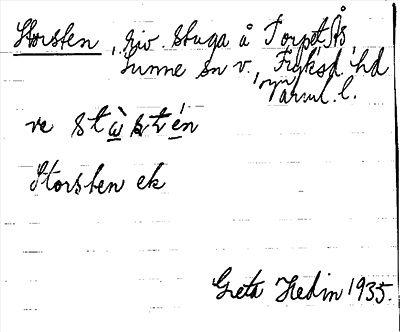 Storsten, riv. stuga å Torpet Ås,
Sunne sn v., Fryksd. hd
Värml. l.
ve stàk stén
Storsten ek
Greta Hedin 1935.